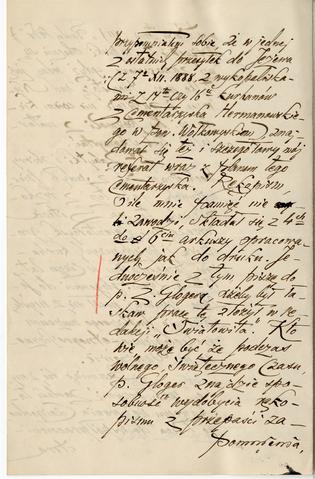 przypomniałem sobie że w jednej
z ostatnich przesyłek do Jeżewa
(z 7º XII. 1888. z wykopaliska-
mi z 17tu czy 16tu kurhanów
z Cmentarzyska Hermanowskie-
go w pow. Wołkowyskiem) zna-
lazł się też i szczegółowy mój
referat wraz z planem tego
Cmentarzyska. Rękopism,
o ile mnie pamięć nie
zawodzi składał się z 4ch
do 6ciu arkuszy opracowa-
nych jak do druku. Je-
dnocześnie z tym piszę do
p. Z Glogera, ażeby był ła-
skaw pracę tę złożyć w re-
dakcji "Światowita". Kto
wie może być że podczas
wolnego, świątecznego czasu
p. Gloger znajdzie spo-
sobność wydobycia ręko-
pismu z przepaści za-
pomnienia.